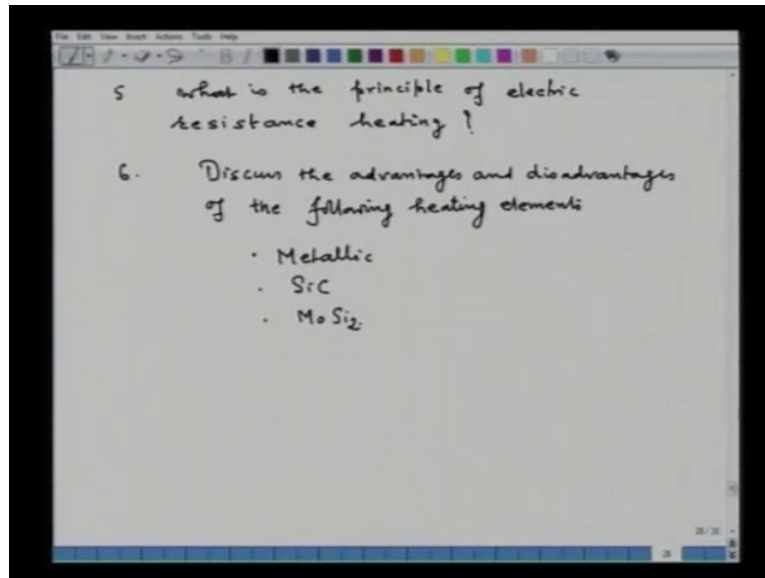 File Edit View Insert Actions Tools Help
5 what is the principle of electric
resistance heating ?
6. Discuss the advantages and disadvantages
of the following heating elements
· Metallic
· SiC
· MoSi2.